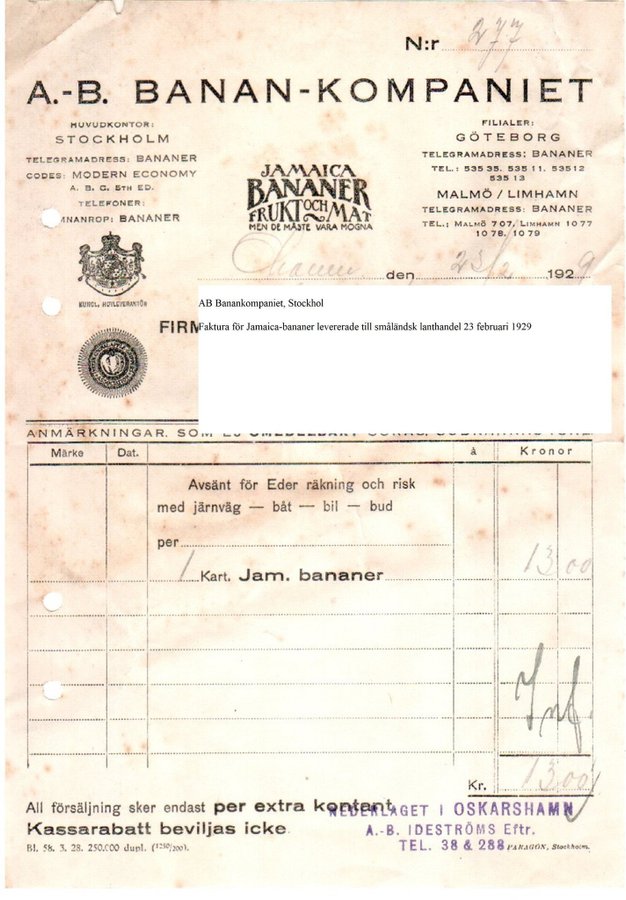 N:r 277
A.-B. BANAN-KOMPANIET
HUVUDKONTOR:
STOCKHOLM
TELEGRAMADRESS: BANANER
CODES: MODERN ECONOMY
A. B. C. 5TH ED.
TELEFONER:
MNANROP: BANANER
KUNGL. HOFLEVERANTÖR
JAMAICA
BANANER
FRUKT OCH MAT
MEN DE MÅSTE VARA MOGNA
FILIALER:
GÖTEBORG
TELEGRAMADRESS: BANANER
TEL.: 535 35. 535 11. 535 12
535 13
MALMÖ / LIMHAMN
TELEGRAMADRESS: BANANER
TEL.: MALMÖ 707, LIMHAMN 1077
1078, 1079
den 23/2 1929
AB Banankompaniet, Stockhol
FIRM
Faktura för Jamaica-bananer levererade till småländsk lanthandel 23 februari 1929
ANMÄRKNINGAR, SOM EJ OMEDELBART
Märke Dat. à Kronor
Avsänt för Eder räkning och risk
med järnväg — båt — bil — bud
per
1 Kart. Jam. bananer 13 00
Kr. 13 00
All försäljning sker endast per extra kontant
Kassarabatt beviljas icke
NEDERLAGET I OSKARSHAMN
A.-B. IDESTRÖMS Eftr.
TEL. 38 & 288
Bl. 58. 3. 28. 250.000 dupl. (1250/200).
PARAGON, Stockholm.